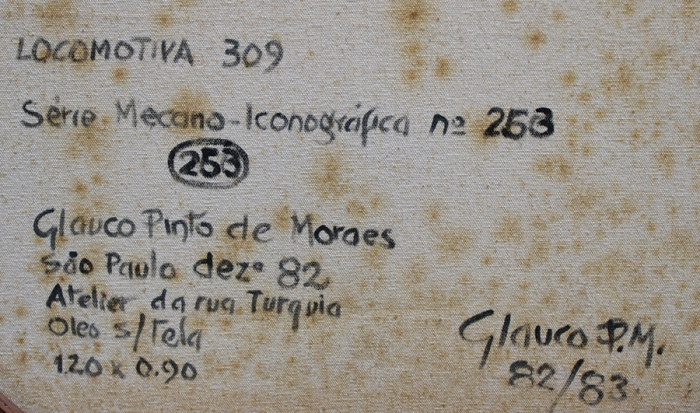 LOCOMOTIVA 309
Série Mecano-Iconográfica nº 253
253
Glauco Pinto de Moraes
são Paulo dezº 82
Atelier da rua Turquia
Oleo s/Tela
1.20 x 0.90
Glauco P.M.
82/83.